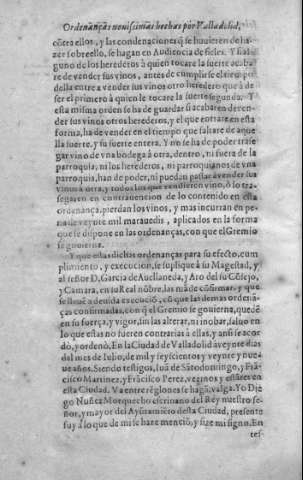 Ordenanças nouissimas hechas por Valladolid,
cõtra ellos, y las condenaciones q̃ se huuieren de ha-
zer sobre ello, se hagan en Audiencia de fieles. Y si al-
guno de los herederos à quien tocare la fuerte acaba
re de vender sus vinos, antes de cumplirse el tiempo
della entre a vender sus vinos otro heredero que à de
ser el primero à quien le tocare la suerte segunda. Y
esta misma orden se ha de guardar si acabaren de ven-
der sus vinos otros herederos, y el que entrare en esta
forma, ha de vender en el tiempo que faltare de aque
lla suerte, y su suerte entera. Y no se ha de poder trase
gar vino de vna bodega à otra, dentro, ni fuera de la
parroquia, ni los herederos, ni parroquianos de vna
parroquia, han de poder, ni puedan passar à vender sus
vinos à otra, y todos los que vendieren vino, ò lo tra-
segaren en contrauencion de lo contenido en esta
ordenança, pierdan los vinos, y mas incurran en pe-
na de veynte mil marauedis, aplicados en la forma
que se dispone en las ordenanças, con que el Gremio
se gouierna.
Y que estas dichas ordenanças para su efecto, cum
plimiento, y execucion, se suplique à su Magestad, y
al señor D. Garcia de Auellaneda, y Aro del su Cõsejo,
y Camara, en su Real nõbre, las mãde cõfirmar, y que
se lleuẽ a deuida execuciõ, cõ que las demas ordenã-
ças confirmadas, con q̃ el Gremio se gouierna, quedẽ
en su fuerça, y vigor, sin las alterar, ni inobar, saluo en
lo que estas no fueren contrarias à ellas, y ansi se acor
dò, y ordenò. En la Ciudad de Valladolid à veynte dias
del mes de Iulio, de mil y seyscientos y veynte y nue-
ue años. Siendo testigos, Iuã de Sãtodomingo, y Frã-
cisco Martinez, y Frãcisco Perez, vezinos y estãtes en
esta Ciudad. Va entre reglones se haga, valga. Yo Die
go Nuñez Morquecho escriuano del Rey nuestro se-
ñor, y mayor del Ayũtamiẽto desta Ciudad, presente
fuy à lo que de mi se haze menciõ, y fize mi signo. En
tes-